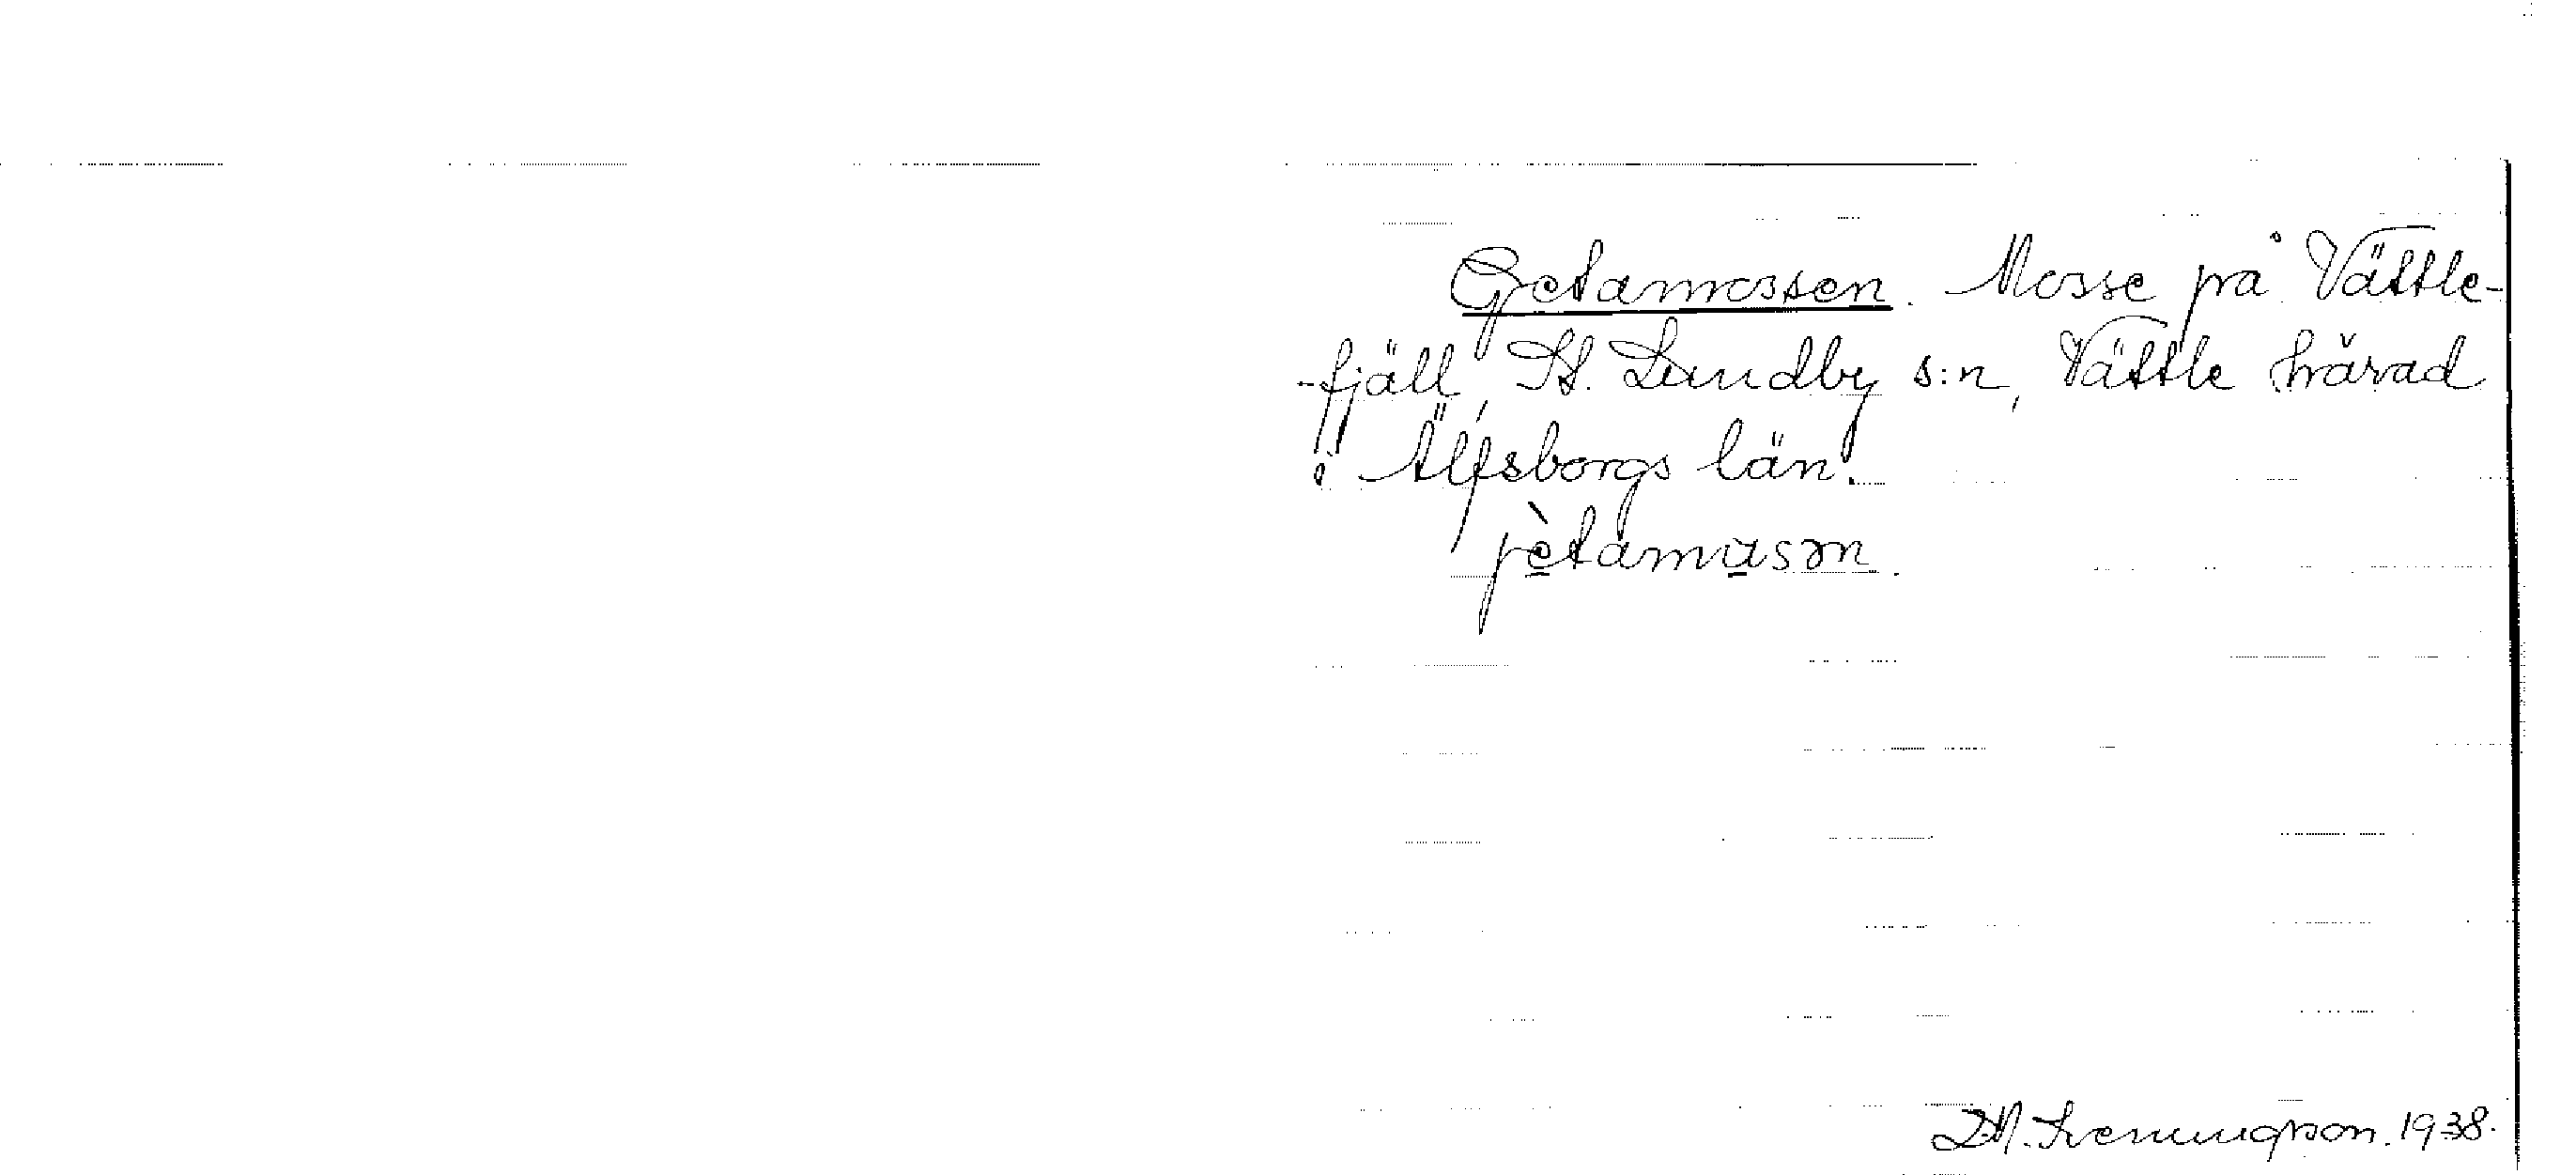 Getamossen. Mosse på Vättle-
-fjäll, St. Lundby s:n, Vättle härad
i Älfsborgs län.
jètamasən.
1938.